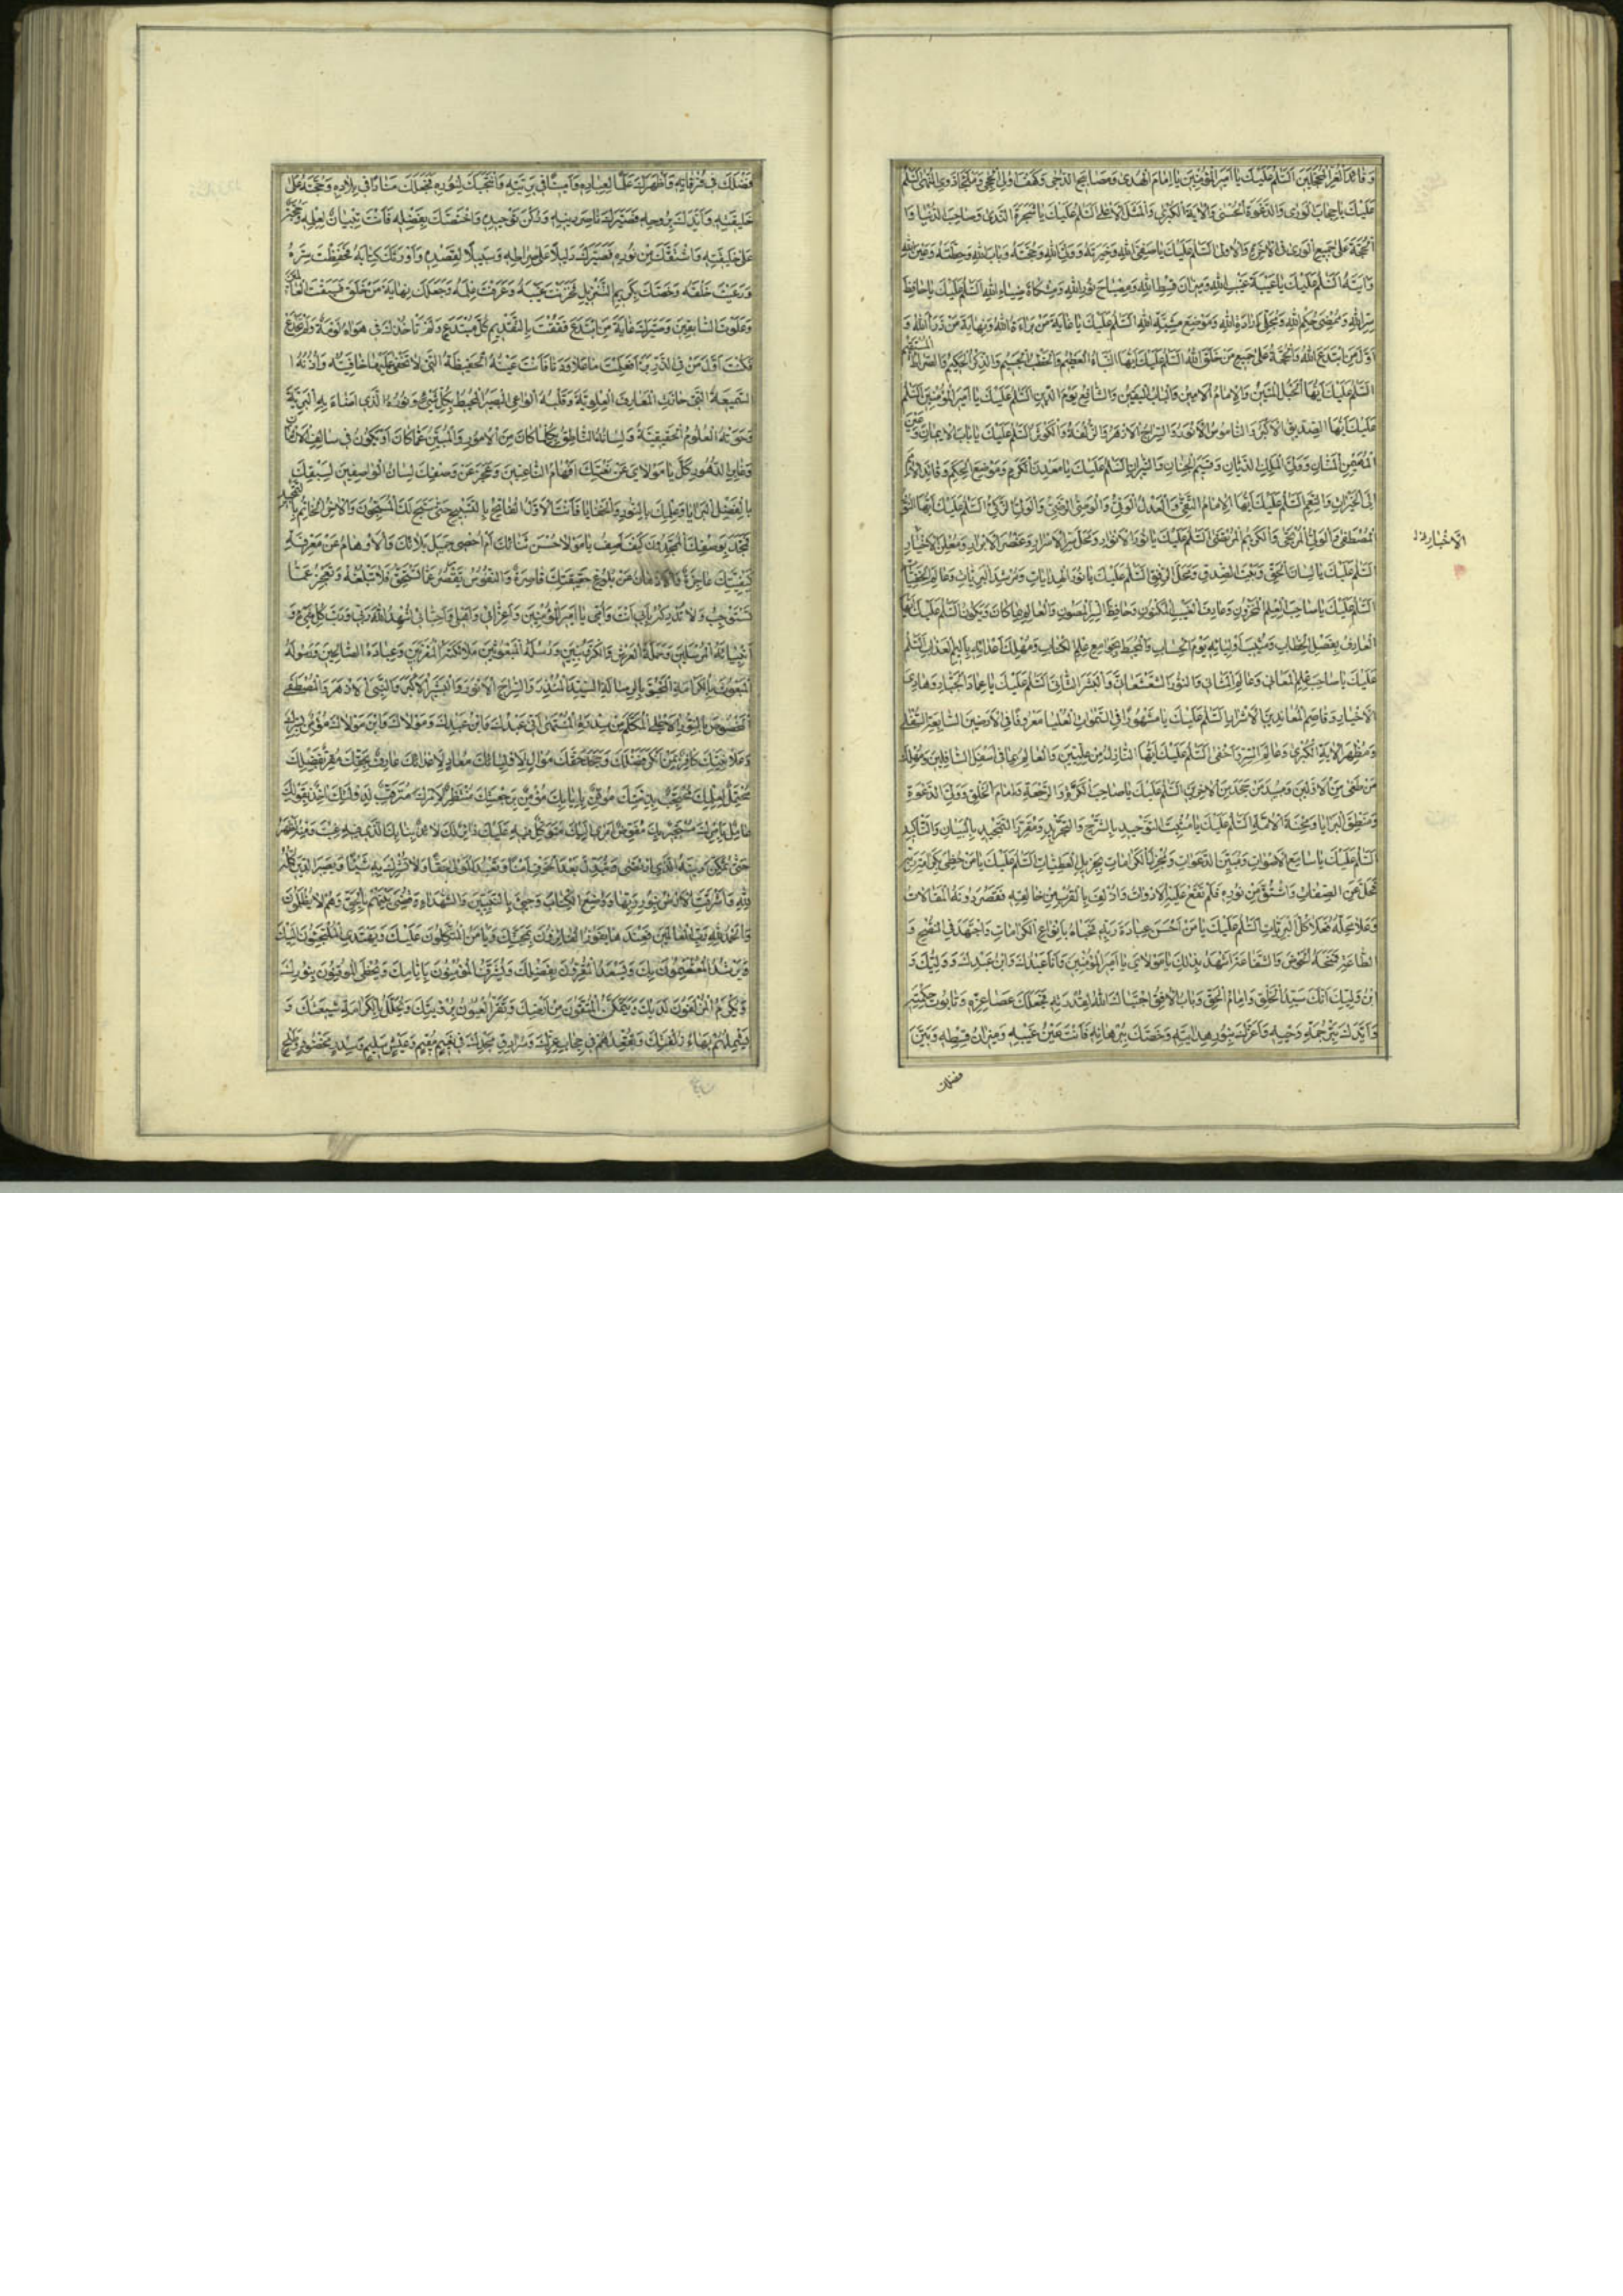 وَقَائِدَ الْغُرِّ الْمُحَجَّلِينَ اَلسَّلٰمُ عَلَيْكَ يَا اَمِيرَ الْمُؤْمِنِينَ يَا اِمَامَ الْهُدٰى وَمَصَابِيحَ الدُّجٰى وَكَهْفَ اُولِى الْحِجٰى
عَلَيْكَ يَا حِجَابَ الْوَرٰى وَالدَّعْوَةَ الْحُسْنٰى وَالْاٰيَةَ الْكُبْرٰى وَالْمَثَلَ الْاَعْلٰى اَلسَّلٰمُ عَلَيْكَ يَا شَجَرَةَ النَّدٰى وَصَاحِبَ الدُّنْيَا وَا
الْحُجَّةَ عَلٰى جَمِيعِ الْوَرٰى فِى الْاٰخِرَةِ وَالْاُولٰى اَلسَّلٰمُ عَلَيْكَ يَا صَفِىَّ اللّٰهِ وَخِيَرَتَهُ وَوَلِىَّ اللّٰهِ وَحُجَّتَهُ وَبَابَ اللّٰهِ وَحِطَّتَهُ وَعَيْنَ اللّٰهِ
وَاٰيَتَهُ اَلسَّلٰمُ عَلَيْكَ يَا عَيْبَةَ غَيْبِ اللّٰهِ وَمِيزَانَ قِسْطِ اللّٰهِ وَمِصْبَاحَ نُورِ اللّٰهِ وَمِشْكَاةَ ضِيَاءِ اللّٰهِ اَلسَّلٰمُ عَلَيْكَ يَا حَافِظَ
سِرِّ اللّٰهِ وَمُمْضِىَ حُكْمِ اللّٰهِ وَمُجَلِّىَ اِرَادَةِ اللّٰهِ وَمَوْضِعَ مَشِيَّةِ اللّٰهِ اَلسَّلٰمُ عَلَيْكَ يَا غَايَةَ مَنْ بَرَاَهُ اللّٰهُ وَنِهَايَةَ مَنْ ذَرَاَ اللّٰهُ وَ
اَوَّلَ مَنِ ابْتَدَعَ اللّٰهُ وَالْحُجَّةُ عَلٰى جَمِيعِ مَنْ خَلَقَ اللّٰهُ اَلسَّلٰمُ عَلَيْكَ اَيُّهَا النَّبَاُ الْعَظِيمُ وَالْخَطْبُ الْجَسِيمُ وَالذِّكْرُ الْحَكِيمُ وَالصِّرَاطُ الْمُسْتَقِيمُ
اَلسَّلٰمُ عَلَيْكَ اَيُّهَا الْحَبْلُ الْمَتِينُ وَالْاِمَامُ الْاَمِينُ وَالْبَابُ الْيَقِينُ وَالشَّافِعُ يَوْمَ الدِّينِ اَلسَّلٰمُ عَلَيْكَ يَا اَمِيرَ الْمُؤْمِنِينَ اَلسَّلٰمُ
عَلَيْكَ اَيُّهَا الصِّدِّيقُ الْاَكْبَرُ وَالنَّامُوسُ الْاَنْوَرُ وَالسِّرَاجُ الْاَزْهَرُ وَالزُّلْفَةُ وَالْكَوْثَرُ اَلسَّلٰمُ عَلَيْكَ يَا بَابَ الْاِيمَانِ وَعَيْنَ
الْمُهَيْمِنِ الْمَنَّانِ وَوَلِىَّ الْمَلِكِ الدَّيَّانِ وَقَسِيمَ الْجِنَانِ وَالنِّيرَانِ اَلسَّلٰمُ عَلَيْكَ يَا مَعْدِنَ الْكَرَمِ وَمَوْضِعَ الْحِكَمِ وَقَائِدَ الْاُمَمِ
اِلَى الْخَيْرَاتِ وَالنِّعَمِ اَلسَّلٰمُ عَلَيْكَ اَيُّهَا الْاِمَامُ التَّقِىُّ وَالْعَدْلُ الْوَفِىُّ وَالْوَصِىُّ الرَّضِىُّ وَالْوَلِىُّ الزَّكِىُّ اَلسَّلٰمُ عَلَيْكَ اَيُّهَا النُّورُ
الْمُصْطَفٰى وَالْوَلِىُّ الْمُرْتَجٰى وَالْكَرِيمُ الْمُرْتَضٰى اَلسَّلٰمُ عَلَيْكَ يَا نُورَ الْاَنْوَارِ وَمَحَلَّ سِرِّ الْاَسْرَارِ وَعُنْصُرَ الْاَبْرَارِ وَمُعْلِنَ الْاَخْيَارِ
اَلسَّلٰمُ عَلَيْكَ يَا لِسَانَ الْحَقِّ وَبَيْتَ الصِّدْقِ وَمَحَلَّ الرِّفْقِ اَلسَّلٰمُ عَلَيْكَ يَا نُورَ الْهِدَايَاتِ وَمُرْشِدَ الْبَرِيَّاتِ وَعَالِمَ الْخَفِيَّاتِ
اَلسَّلٰمُ عَلَيْكَ يَا صَاحِبَ الْعِلْمِ الْمَخْزُونِ وَعَارِفَ الْغَيْبِ الْمَكْنُونِ وَحَافِظَ السِّرِّ الْمَصُونِ وَالْعَالِمَ بِمَا كَانَ وَيَكُونُ اَلسَّلٰمُ عَلَيْكَ اَيُّهَا
الْعَارِفُ بِفَصْلِ الْخِطَابِ وَمُثِيبَ اَوْلِيَائِهِ يَوْمَ الْحِسَابِ وَالْمُحِيطَ بِجَوَامِعِ عِلْمِ الْكِتَابِ وَمُهْلِكَ اَعْدَائِهِ بِاَلِيمِ الْعَذَابِ اَلسَّلٰمُ
عَلَيْكَ يَا صَاحِبَ عِلْمِ الْمَعَانِى وَعَالِمَ الْمَثَانِى وَالنُّورَ الشَّعْشَعَانِىَّ وَالْبَشَرَ الثَّانِىَ اَلسَّلٰمُ عَلَيْكَ يَا عِمَادَ الْجَبَّارِ وَهَادِىَ
الْاَخْيَارِ وَقَاصِمَ الْمُعَانِدِينَ الْاَشْرَارِ اَلسَّلٰمُ عَلَيْكَ يَا مَشْهُورًا فِى السَّمٰوَاتِ الْعُلْيَا مَعْرُوفًا فِى الْاَرَضِينَ السَّابِعَةِ السُّفْلٰى
وَمُظْهِرَ الْاٰيَةِ الْكُبْرٰى وَعَالِمَ السِّرِّ وَاَخْفٰى اَلسَّلٰمُ عَلَيْكَ اَيُّهَا النَّازِلُ مِنْ عِلِّيِّينَ وَالْعَالِمُ بِمَا فِى اَسْفَلِ السَّافِلِينَ وَمُهْلِكَ
مَنْ طَغٰى مِنَ الْاَوَّلِينَ وَمُبِيدَ مَنْ جَحَدَ مِنَ الْاٰخِرِينَ اَلسَّلٰمُ عَلَيْكَ يَا صَاحِبَ الْكَرَّةِ وَالرَّجْعَةِ وَاِمَامَ الْخَلْقِ وَوَلِىَّ الدَّعْوَةِ
وَمَنْطِقَ الْبَرَايَا وَمِحْنَةَ الْاُمَّةِ اَلسَّلٰمُ عَلَيْكَ يَا مُثْبِتَ التَّوْحِيدِ بِالشَّرْحِ وَالتَّجْرِيدِ وَمُقَرِّرَ التَّمْجِيدِ بِالْبَيَانِ وَالتَّاْكِيدِ
اَلسَّلٰمُ عَلَيْكَ يَا سَامِعَ الْاَصْوَاتِ وَمُبَيِّنَ الدَّعَوَاتِ وَمُجْزِلَ الْكَرَامَاتِ بِجَزِيلِ الْعَطِيَّاتِ اَلسَّلٰمُ عَلَيْكَ يَا مَنْ حَظِىَ بِكَرَامَةِ رَبِّهِ
فَجَلَّ عَنِ الصِّفَاتِ وَاشْتُقَّ مِنْ نُورِهِ فَلَمْ تَقَعْ عَلَيْهِ الْاَدَوَاتُ وَازْدَلَفَ بِالْقُرْبِ مِنْ خَالِقِهِ فَقَصُرَ دُونَهُ الْمَقَالَاتُ
وَعَلَا مَحَلُّهُ فَعَلَا كُلَّ الْبَرِيَّاتِ اَلسَّلٰمُ عَلَيْكَ يَا مَنْ اَحْسَنَ عِبَادَةَ رَبِّهِ فَحَبَاهُ بِاَنْوَاعِ الْكَرَامَاتِ وَاجْتَهَدَ فِى النُّصْحِ وَ
الطَّاعَةِ فَمَنَحَهُ الْحَوْضَ وَالشَّفَاعَةَ اَشْهَدُ بِذٰلِكَ يَا مَوْلَاىَ يَا اَمِيرَ الْمُؤْمِنِينَ وَاَنَا عَبْدُكَ وَابْنُ عَبْدِكَ وَوَلِيُّكَ وَ
ابْنُ وَلِيِّكَ اَنَّكَ سَيِّدُ الْخَلْقِ وَاِمَامُ الْحَقِّ وَبَابُ الْاُفُقِ اجْتَبَاكَ اللّٰهُ لِقُدْرَتِهِ فَجَعَلَكَ عَصَا عِزِّهِ وَتَابُوتَ حِكْمَتِهِ
وَاَيَّدَكَ بِتَرْجُمَةِ وَحْيِهِ وَاَعَزَّكَ بِنُورِ هِدَايَتِهِ وَخَصَّكَ بِبُرْهَانِهِ فَاَنْتَ عَيْنُ غَيْبِهِ وَمِيزَانُ قِسْطِهِ وَبَيَّنَ
فضلك
فَضْلَكَ فِى فُرْقَانِهِ وَاَظْهَرَكَ عَلَمًا لِعِبَادِهِ وَاَمِينًا فِى بَرِيَّتِهِ وَانْتَجَبَكَ لِنُورِهِ فَجَعَلَكَ مَنَارًا فِى بِلَادِهِ وَحُجَّتَهُ عَلٰى
خَلِيقَتِهِ وَاَيَّدَكَ بِرُوحِهِ فَصَيَّرَكَ نَاصِرَ دِينِهِ وَرُكْنَ تَوْحِيدِهِ وَاخْتَصَّكَ بِفَضْلِهِ فَاَنْتَ تِبْيَانٌ لِعِلْمِهِ وَحُجَّةٌ
عَلٰى خَلِيقَتِهِ وَاشْتَقَّكَ مِنْ نُورِهِ فَصَيَّرَكَ دَلِيلًا عَلٰى صِرَاطِهِ وَسَبِيلًا لِقَصْدِهِ وَاَوْرَثَكَ كِتَابَهُ فَحَفِظْتَ سِرَّهُ
وَرَعَيْتَ خَلْقَهُ وَخَصَّكَ بِكَرِيمِ التَّنْزِيلِ فَخَزَنْتَ غَيْبَهُ وَعَرَفْتَ عِلْمَهُ وَجَعَلَكَ نِهَايَةَ مَنْ خَلَقَ فَسَبَقْتَ الْعَالَمِينَ
وَعَلَوْتَ السَّابِقِينَ وَصَيَّرَكَ غَايَةَ مَنِ ابْتَدَعَ فَفُقْتَ بِالتَّقْدِيمِ كُلَّ مُبْتَدَعٍ وَلَمْ تَاْخُذْكَ فِى هَوَاهُ لَوْمَةٌ
فَكُنْتَ اَوَّلَ مَنْ فِى الذَّرِّ بَرَاَ فَعَلِمْتَ مَا عَلَا وَدَنَا فَاَنْتَ عَيْنُهُ الْحَفِيظَةُ الَّتِى لَا تَخْفٰى عَلَيْهَا خَافِيَةٌ وَاُذُنُهُ ا
السَّمِيعَةُ الَّتِى حَازَتِ الْمَعَارِفَ الْعُلْوِيَّةَ وَقَلْبُهُ الْوَاعِى الْبَصِيرُ الْمُحِيطُ بِكُلِّ شَىْءٍ وَنُورُهُ الَّذِى اَضَاءَ بِهِ الْبَرِيَّةَ
وَحَوَتْهُ الْعُلُومُ الْحَقِيقِيَّةُ وَلِسَانُهُ النَّاطِقُ بِكُلِّ مَا كَانَ مِنَ الْاُمُورِ وَالْمُبَيِّنُ عَمَّا كَانَ اَوْ يَكُونُ فِى سَالِفِ الْاَزْمَانِ
وَغَابِرِ الدُّهُورِ كَلَّ يَا مَوْلَاىَ عَنْ نَعْتِكَ اَفْهَامُ النَّاعِتِينَ وَعَجَزَ عَنْ وَصْفِكَ لِسَانُ الْوَاصِفِينَ لِسَبْقِكَ
بِالْفَضْلِ الْبَرَايَا وَعِلْمِكَ بِالنُّورِ وَالْخَفَايَا فَاَنْتَ الْاَوَّلُ الْفَاتِحُ بِالتَّسْبِيحِ حَتّٰى سَبَّحَ لَكَ الْمُسَبِّحُونَ وَالْاٰخِرُ الْخَاتِمُ بِالتَّمْجِيدِ
فَمَجَّدَ بِوَصْفِكَ الْمُمَجِّدُونَ كَيْفَ اَصِفُ يَا مَوْلَاىَ حُسْنَ ثَنَائِكَ اَمْ اُحْصِى جَمِيلَ بَلَائِكَ وَالْاَوْهَامُ عَنْ مَعْرِفَةِ
كَيْفِيَّتِكَ عَاجِزَةٌ وَالْاَذْهَانُ عَنْ بُلُوغِ حَقِيقَتِكَ قَاصِرَةٌ وَالنُّفُوسُ تَقْصُرُ عَمَّا تَسْتَحِقُّ فَلَا تَبْلُغُهُ وَتَعْجِزُ عَمَّا
تَسْتَوْجِبُ وَلَا تُدْرِكُهُ بِاَبِى اَنْتَ وَاُمِّى يَا اَمِيرَ الْمُؤْمِنِينَ وَاَعِزَّائِى وَاَهْلِى وَاَحِبَّائِى اُشْهِدُ اللّٰهَ رَبِّى وَرَبَّ كُلِّ شَىْءٍ وَ
اَنْبِيَائَهُ الْمُرْسَلِينَ وَحَمَلَةَ الْعَرْشِ وَالْكَرُوبِيِّينَ وَرُسُلَهُ الْمَبْعُوثِينَ وَمَلَائِكَتَهُ الْمُقَرَّبِينَ وَعِبَادَهُ الصَّالِحِينَ وَرَسُولَهُ
الْمَبْعُوثَ بِالْكَرَامَةِ الْمَحْبُوَّ بِالرِّسَالَةِ السَّيِّدَ الْمُنْذِرَ وَالسِّرَاجَ الْاَنْوَرَ وَالْبَشِيرَ الْاَكْبَرَ وَالنَّبِىَّ الْاَزْهَرَ وَالْمُصْطَفٰى
الْمَخْصُوصَ بِالنُّورِ الْاَعْلٰى الْمُكَلَّمَ مِنْ سِدْرَةِ الْمُنْتَهٰى اَنِّى عَبْدُكَ وَابْنُ عَبْدِكَ وَمَوْلَاكَ وَابْنُ مَوْلَاكَ مُؤْمِنٌ بِسِرِّكَ
وَعَلَانِيَتِكَ كَافِرٌ بِمَنْ اَنْكَرَ فَضْلَكَ وَجَحَدَ حَقَّكَ مُوَالٍ لِاَوْلِيَائِكَ مُعَادٍ لِاَعْدَائِكَ عَارِفٌ بِحَقِّكَ مُقِرٌّ بِفَضْلِكَ
مُحْتَمِلٌ لِعِلْمِكَ مُحْتَجِبٌ بِذِمَّتِكَ مُوقِنٌ بِاِيَابِكَ مُؤْمِنٌ بِرَجْعَتِكَ مُنْتَظِرٌ لِاَمْرِكَ مُتَرَقِّبٌ لِدَوْلَتِكَ اٰخِذٌ بِقَوْلِكَ
عَامِلٌ بِاَمْرِكَ مُسْتَجِيرٌ بِكَ مُفَوِّضٌ اَمْرِى اِلَيْكَ مُتَوَكِّلٌ فِيهِ عَلَيْكَ زَائِرٌ لَكَ لَائِذٌ بِبَابِكَ الَّذِى فِيهِ غِبْتَ وَمِنْهُ تَظْهَرُ
حَتّٰى تُمَكِّنَ دِينَهُ الَّذِى ارْتَضٰى وَتُبَدِّلَ بَعْدَ الْخَوْفِ اَمْنًا وَتَعْبُدَ الْمَوْلٰى حَقًّا وَلَا تُشْرِكَ بِهِ شَيْئًا وَيَصِيرَ الدِّينُ كُلُّهُ
لِلّٰهِ وَاَشْرَقَتِ الْاَرْضُ بِنُورِ رَبِّهَا وَوُضِعَ الْكِتَابُ وَجِىءَ بِالنَّبِيِّينَ وَالشُّهَدَاءِ وَقُضِىَ بَيْنَهُمْ بِالْحَقِّ وَهُمْ لَا يُظْلَمُونَ
وَالْحَمْدُ لِلّٰهِ رَبِّ الْعَالَمِينَ فَعِنْدَهَا يَفُوزُ الْفَائِزُونَ بِمَحَبَّتِكَ وَيَاْمَنُ الْمُتَّكِلُونَ عَلَيْكَ وَيَهْتَدِى الْمُلْتَجِئُونَ اِلَيْكَ
وَيَرْشُدُ الْمُعْتَصِمُونَ بِكَ وَيَسْعَدُ الْمُقِرُّونَ بِفَضْلِكَ وَيُشَرَّفُ الْمُؤْمِنُونَ بِاَيَّامِكَ وَيَحْظَى الْمُوقِنُونَ بِنُورِكَ
وَيُكْرَمُ الْمُزْلَفُونَ لَدَيْكَ وَيَتَمَكَّنُ الْمُتَّقُونَ مِنْ اَرْضِكَ وَتَقَرُّ الْعُيُونُ بِرُؤْيَتِكَ وَيُجَلَّلُ بِالْكَرَامَةِ شِيعَتُكَ وَ
يَشْمَلُهُمْ بَهَاءُ زُلْفَتِكَ وَتُقْعِدُهُمْ فِى حِجَابِ عِزِّكَ وَسُرَادِقِ مَجْدِكَ فِى نَعِيمٍ مُقِيمٍ وَعَيْشٍ سَلِيمٍ وَسِدْرٍ مَخْضُودٍ وَطَلْحٍ